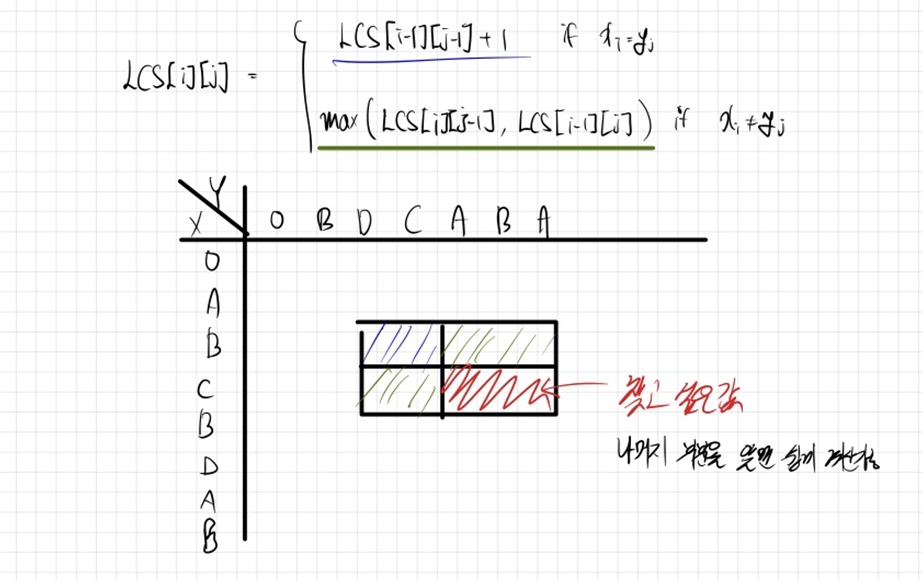 LCS[i-1][j-1] + 1 if xi=yj
LCS[i][j] =
max(LCS[i][j-1], LCS[i-1][j]) if xi≠yj
Y
X
0 B D C A B A
0
A
B
C
B
D
A
B
찾고 싶은 값
나머지 부분을 알면 쉽게 계산가능